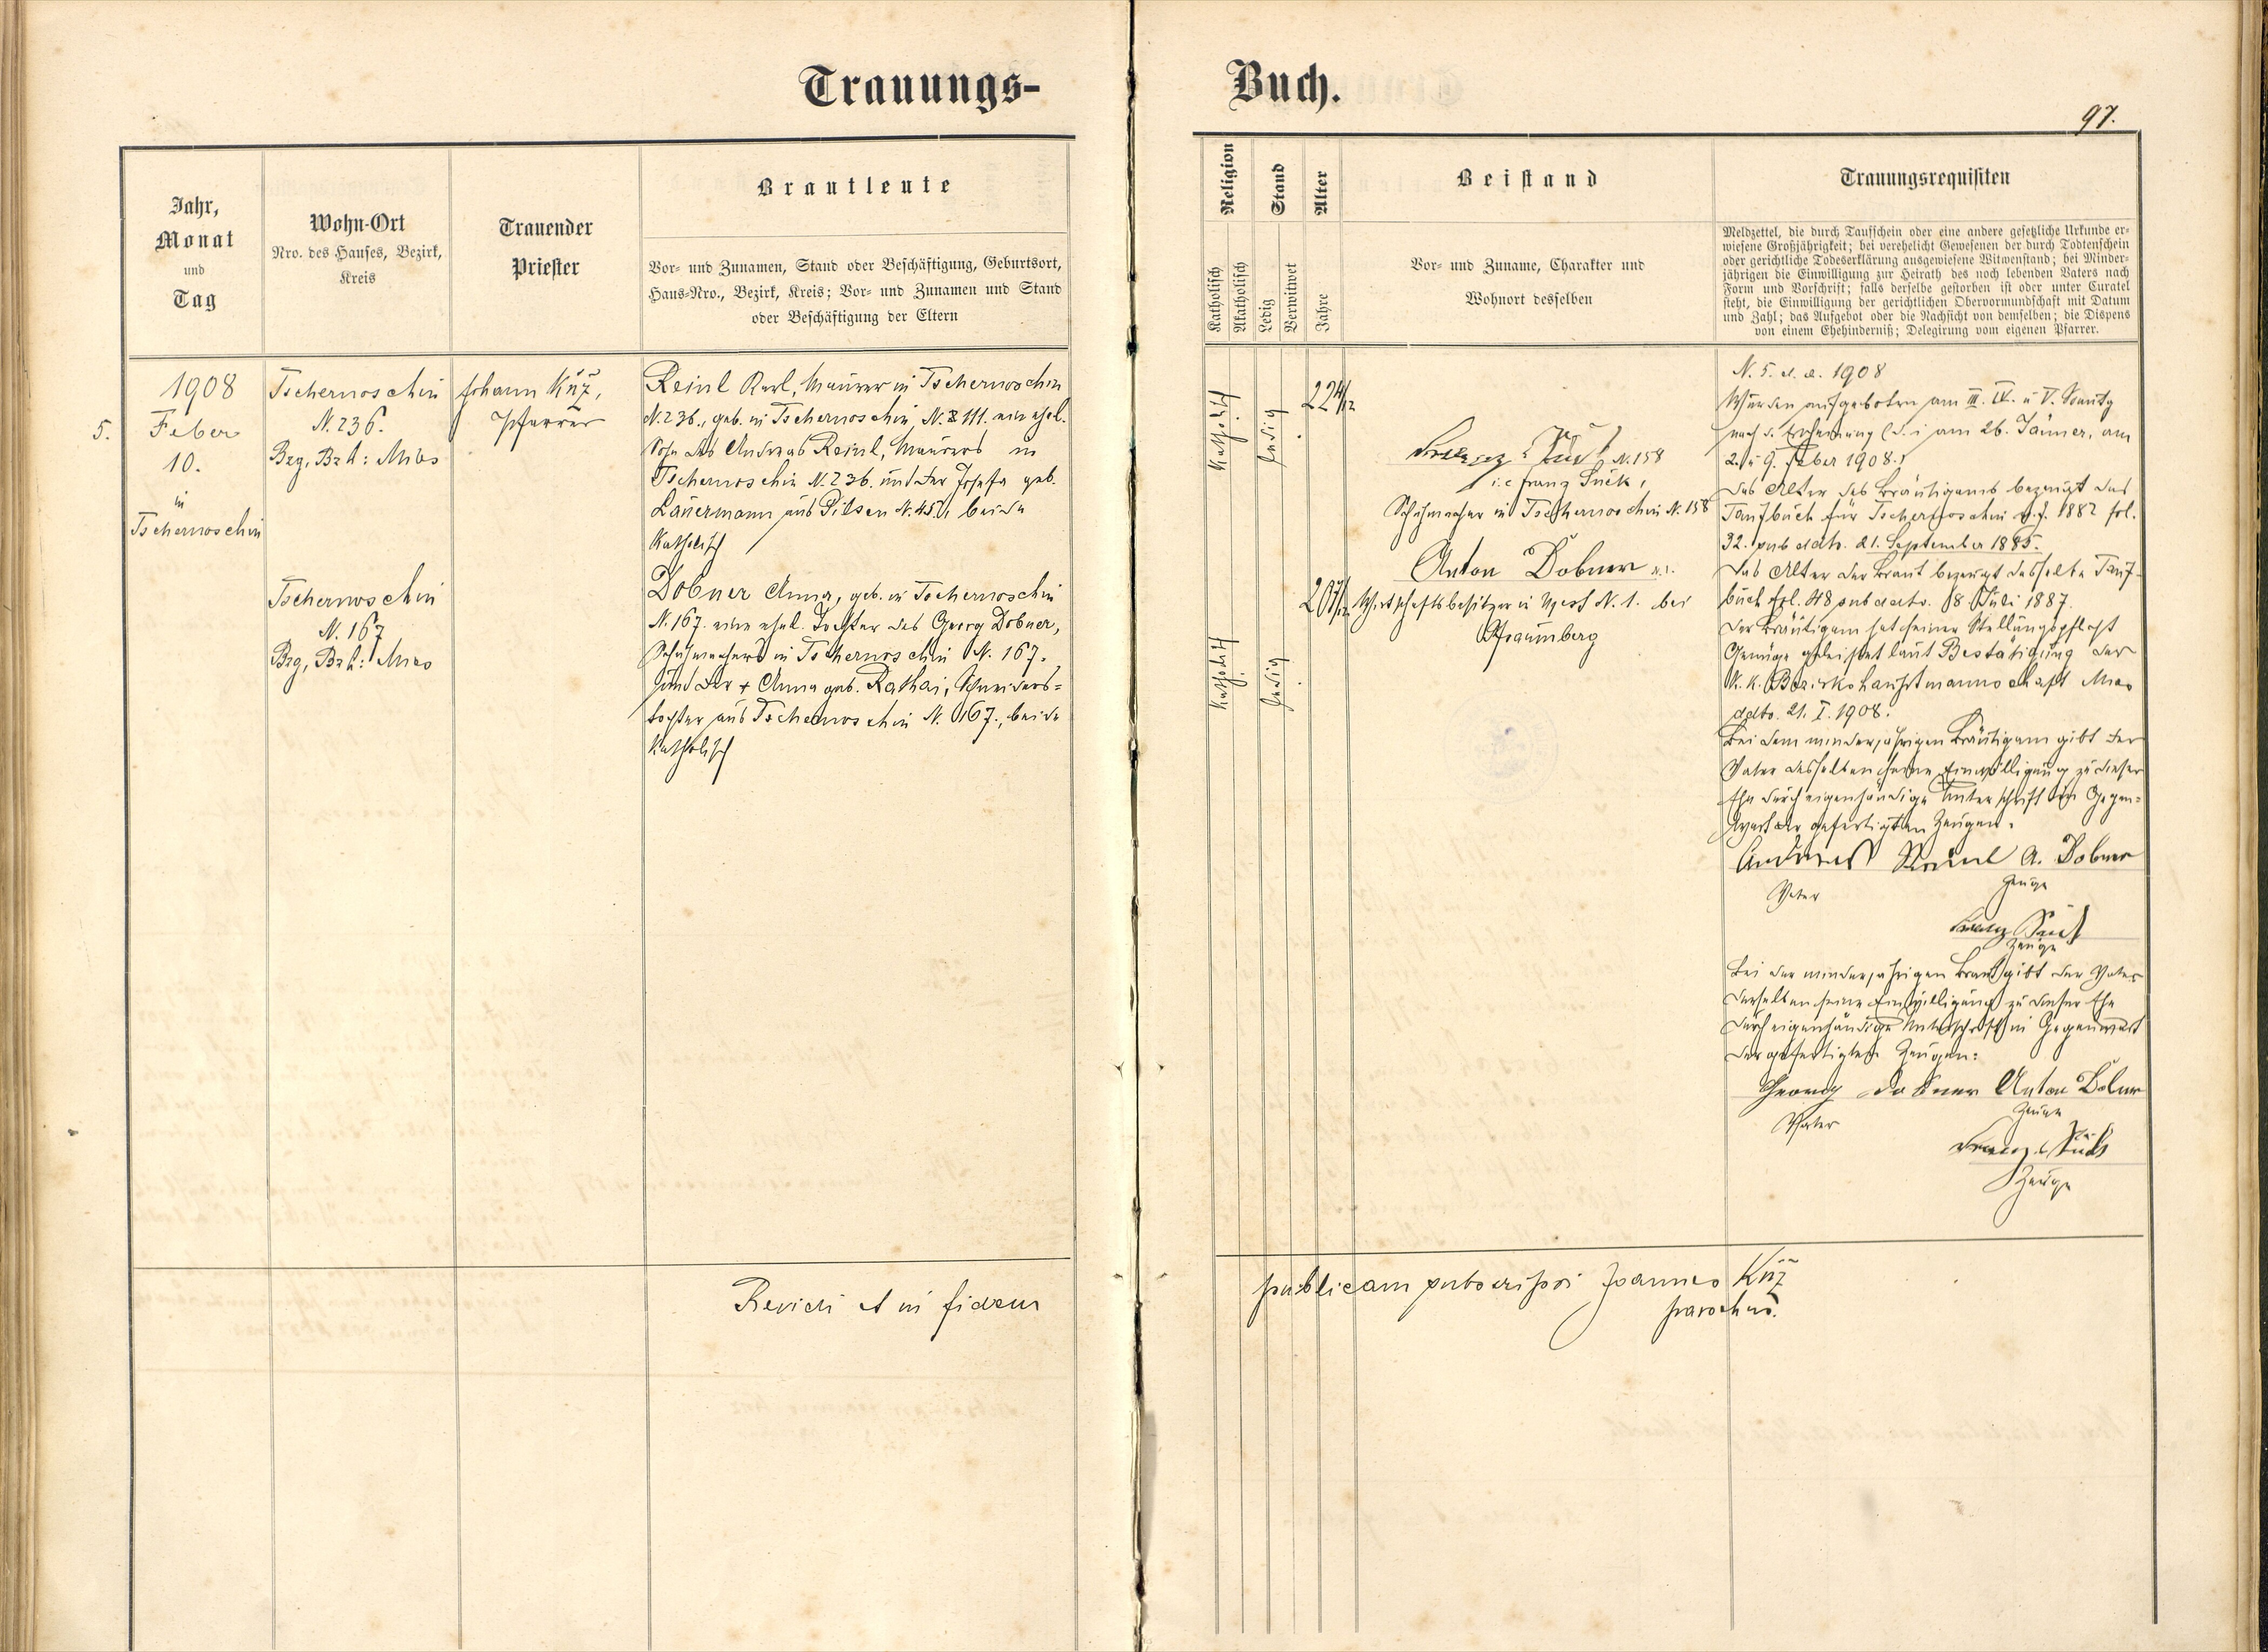 Trauungs-
Buch.
97.
Jahr,
Monat
und
Tag
Wohn-Ort
Nro. des Hauses, Bezirk,
Kreis
Trauender
Priester
Brautleute
Vor- und Zunamen, Stand oder Beschäftigung, Geburtsort,
Haus-Nro., Bezirk, Kreis; Vor- und Zunamen und Stand
oder Beschäftigung der Eltern
Religion
Katholisch
Akatholisch
Stand
Ledig
Verwitwet
Alter
Jahre
Beistand
Vor- und Zuname, Charakter und
Wohnort desselben
Trauungsrequisiten
Meldzettel, die durch Taufschein oder eine andere gesetzliche Urkunde er-
wiesene Großjährigkeit; bei verehelicht Gewesenen der durch Todtenschein
oder gerichtliche Todeserklärung ausgewiesene Witwenstand; bei Minder-
jährigen die Einwilligung zur Heirath des noch lebenden Vaters nach
Form und Vorschrift; falls derselbe gestorben ist oder unter Curatel
steht, die Einwilligung der gerichtlichen Obervormundschaft mit Datum
und Zahl; das Aufgebot oder die Nachsicht von demselben; die Dispens
von einem Ehehinderniß; Delegirung vom eigenen Pfarrer.
5.
1908
Feber
10.
in
Tschernoschin
Tschernoschin
N. 236.
Bzg, Bzh: Mies
Tschernoschin
N. 167
Bzg, Bzh: Mies
Johann Kůž,
Pfarrer
Reinl Karl, Maurer in Tschernoschin
N. 236., geb. in Tschernoschin, N. 111. ein ehel.
Sohn des Andreas Reinl, Maurers in
Tschernoschin N. 236. und der Josefa geb.
Lauermann aus Pilsen N. 45, beide
katholisch
Dobner Anna, geb. in Tschernoschin
N. 167. eine ehel. Tochter des Georg Dobner,
Schuhmachers in Tschernoschin N. 167.
und der + Anna geb. Rathai, Schneiders=
tochter aus Tschernoschin N. 167., beide
katholisch
katholisch
ledig
22 4/12
katholisch
ledig
20 7/12
Franz Süß N. 158
i.e Franz Sück,
Schuhmacher in Tschernoschin N. 158
Anton Dobner
Wirtschaftsbesitzer in N. 1. bei
Pfraumberg
N. 5. d. a. 1908
Wurden aufgeboten am III. IV. u V. Sonntg
nach d. Erscheinung (d. i am 26. Jänner, am
2. u 9. Feber 1908.)
Das Alter des Bräutigams bezeugt das
Taufbuch für Tschernoschin v. J. 1882 fol.
32. sub ddto. 21. September 1885.
Das Alter der Braut bezeugt dasselbe Tauf-
buch fol. 48 sub ddto. 8 Juli 1887.
Der Bräutigam hat seiner Stellungspflicht
Genüge geleistet laut Bestätigung der
k. k. Bezirkshauptmannschaft Mies
ddto. 21. I. 1908.
Bei dem minderjährigen Bräutigam gibt der
Vater desselben seine Einwilligung zu dieser
Ehe durch eigenhändige Unterschrift in Gegen=
wart der gefertigten Zeugen.
Andreas Reinl A. Dobner
Vater Zeuge
Franz Sück
Zeuge
Bei der minderjährigen Braut gibt der Vater
derselben seine Einwilligung zu dieser Ehe
durch eigenhändige Unterschrift in Gegenwart
der gefertigten Zeugen:
Georg Dobner Anton Dobner
Vater Zeuge
Franz Sück
Zeuge
Revidi et in fidem
publicam subscripsi Joannes Kůž
parochus.